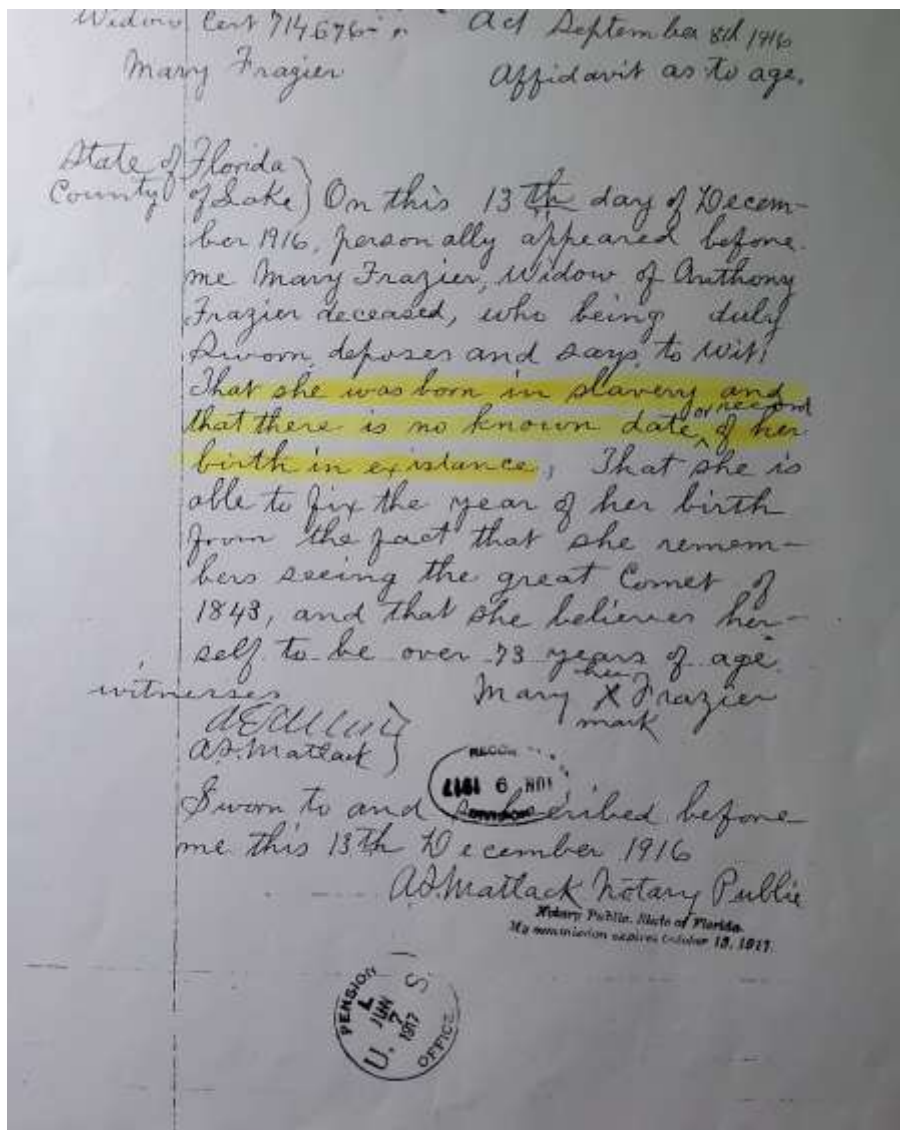 Widow Cert 714.676 Act September 8th 1916
Mary Frazier Affidavit as to age.
State of Florida
County of Lake } On this 13th day of Decem-
ber 1916, personally appeared before
me Mary Frazier, Widow of Anthony
Frazier deceased, who being duly
Sworn, deposes and says, to wit:
That she was born in slavery and
that there is no known date ^ or record of her
birth in existance; That she is
able to fix the year of her birth
from the fact that she remem-
bers seeing the great Comet of
1843, and that she believes her-
self to be over 73 years of age.
witnesses Mary her X Frazier
mark
A.S. Matlack
NOV 6
DIVISION
Sworn to and subscribed before
me this 13th December 1916
A.S. Matlack Notary Public
Notary Public, State of Florida.
My commission expires October 13, 1917.
U. S. PENSION OFFICE
JUN
7
1917